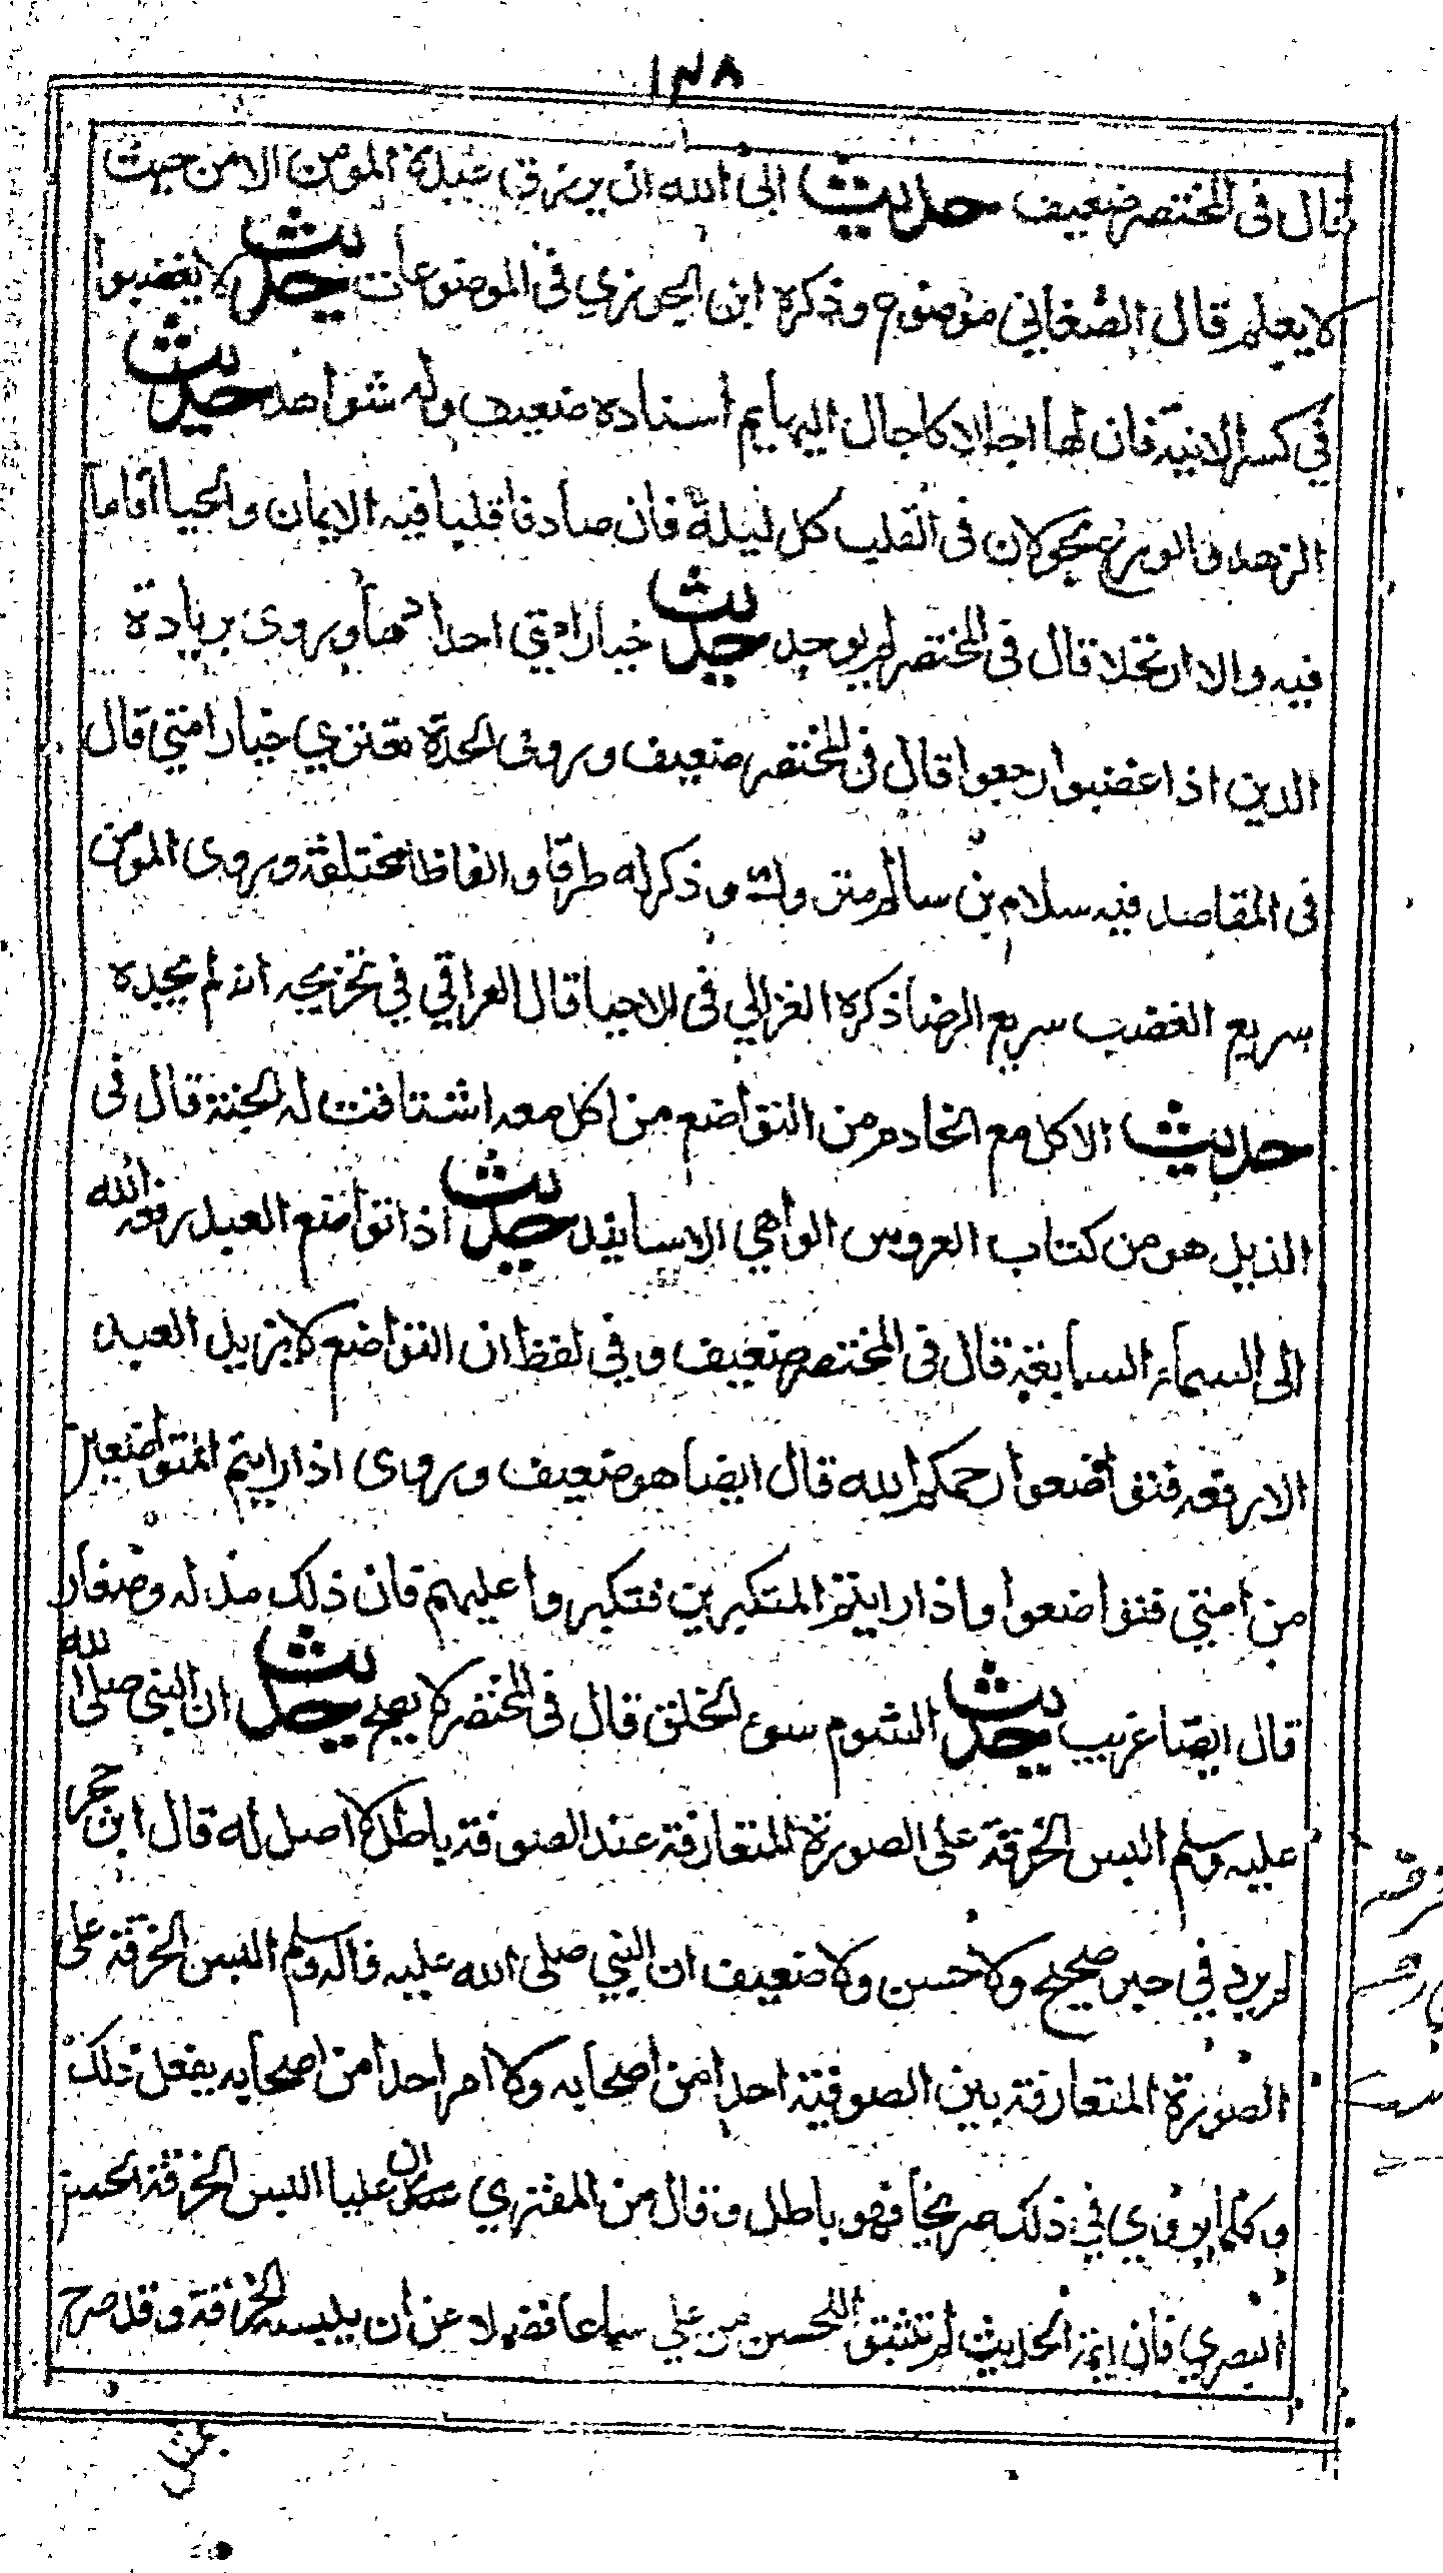 ١٣٨
قال فى المختصر ضعيف حديث ابى الله ان يرزق عبده المومن الا من حيث
لا يعلم قال الصغاني موضوع وذكره ابن الجوزي فى الموضوعات حديث لا يغضبوا
في كسر الانية فان لها اجالا كاجال البهايم اسناده ضعيف وله شواهد حديث
الزهد والورع يجولان فى القلب كل ليلة فان صادفا قلبا فيه الايمان والحيا اقاما
فيه والا ارتحلا قال فى المختصر لم يوجد حديث خيار امتي احداءها ويروى بزيادة
الدين اذا غضبوا رجعوا قال فى المختصر ضعيف وروى الحدة تعتري خيار امتي قال
فى المقاصد فيه سلام بن سالم متروك وذكر له طرقا والفاظا مختلفة ويروى المومن
سريع الغضب سريع الرضا ذكره الغزالي فى الاحيا قال العراقي في تخريجه انه لم يجده
حديث الاكل مع الخادم من التواضع من اكل معه اشتاقت له الجنة قال فى
الذيل هو من كتاب العروس الواهي الاسانيد حديث اذا تواضع العبد رفعه الله
الى السماء السابعة قال فى المختصر ضعيف وفي لفظ ان التواضع لا يزيد العبد
الا رفعه فتواضعوا رحمكم الله قال ايضا هو ضعيف ويروى اذا رايتم المتواضعين
من امتي فتواضعوا واذا رايتم المتكبرين فتكبروا عليهم فان ذلك مذله وصغار
قال ايضا غريب حديث الشوم سوء الخلق قال فى المختصر لا يصح حديث ان النبي صلى الله
عليه وسلم البس الخرقة على الصورة المتعارفة عند الصوفة باطل لا اصل له قال ابن حجر
لم يرد في خبر صحيح ولا حسن ولا ضعيف ان النبي صلى الله عليه واله وسلم البس الخرقة على
الصورة المتعارفة بين الصوفية احدا من اصحابه ولا امر احدا من اصحابه بفعل ذلك
وكلما يروي في ذلك صريحا فهو باطل وقال من المفتري ان عليا البس الخرقة الحسن
البصري فان ايمة الحديث لم تثبت للحسن من علي سماعا فضلا عن ان يلبسه الخرقة وقد صرح